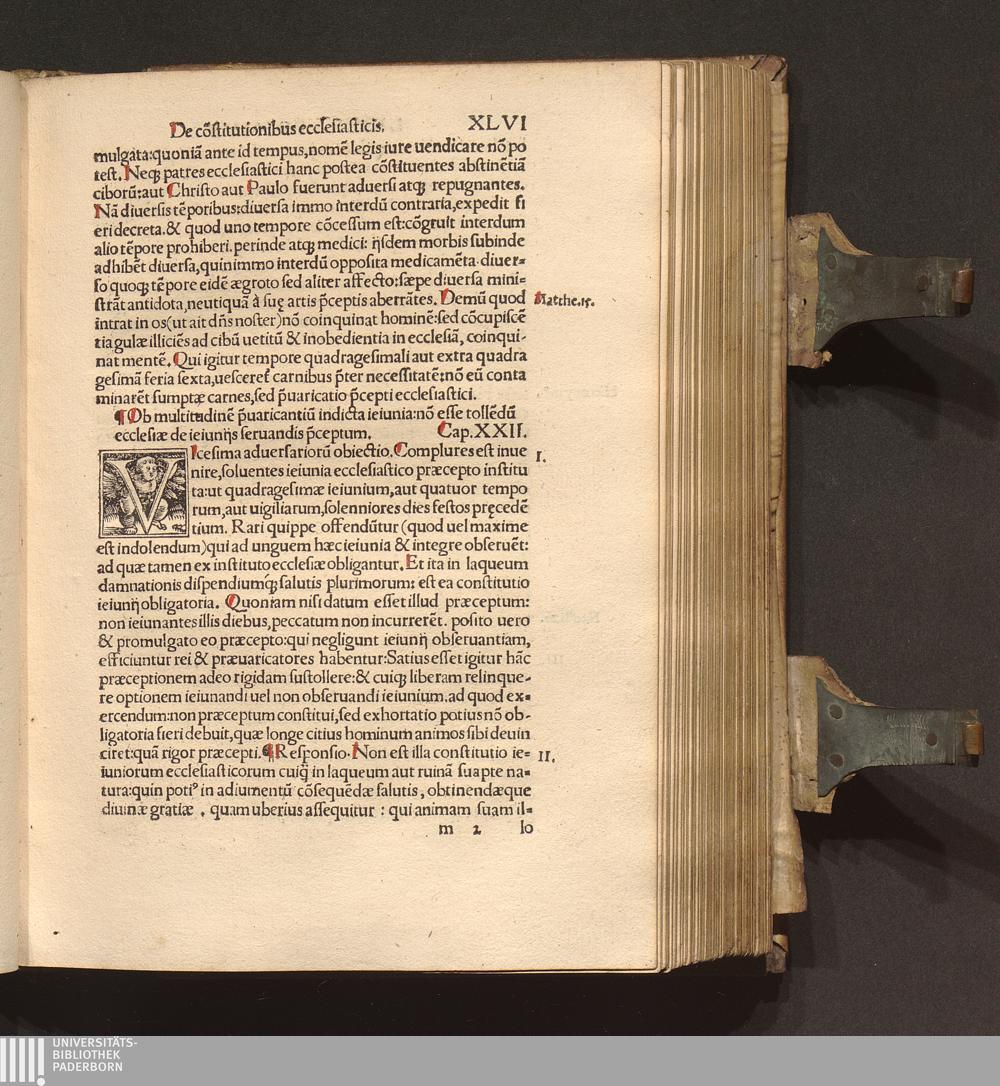 De cõstitutionibus ecclesiasticis. XLVI
mulgata:quoniã ante id tempus,nomẽ legis iure uendicare nõ po
test. Neqꝫ patres ecclesiastici hanc postea cõstituentes abstinẽtiã
ciborũ:aut Christo aut Paulo fuerunt aduersi atqꝫ repugnantes.
Nã diuersis tẽporibus:diuersa immo interdũ contraria,expedit fi
eri decreta.& quod uno tempore cõcessum est:cõgruit interdum
alio tẽpore prohiberi.perinde atqꝫ medici: ijsdem morbis subinde
adhibẽt diuersa,quinimmo interdũ opposita medicamẽta.diuer⸗
so quoqꝫ tẽpore eidẽ ægroto sed aliter affecto:sæpe diuersa mini⸗
strãt antidota,neutiquã à suę artis p̃ceptis aberrãtes. Demũ quod
Matthe.15.
intrat in os(ut ait dñs noster)nõ coinquinat hominẽ:sed cõcupiscẽ
tia gulæ illiciẽs ad cibũ uetitũ & inobedientia in ecclesiã, coinqui⸗
nat mentẽ. Qui igitur tempore quadragesimali aut extra quadra
gesimã feria sexta,uesceret᷑ carnibus p̃ter necessitatẽ:nõ eũ conta
minarẽt sumptæ carnes,sed p̃uaricatio p̃cepti ecclesiastici.
¶ Ob multitudinẽ p̃uaricantiũ indicta ieiunia:nõ esse tollẽdũ
ecclesiæ de ieiunijs seruandis p̃ceptum. Cap.XXII.
VIcesima aduersariorũ obiectio. Complures est inue
I.
nire,soluentes ieiunia ecclesiastico præcepto institu
ta:ut quadragesimæ ieiunium,aut quatuor tempo
rum,aut uigiliarum,solenniores dies festos pręcedẽ
tium. Rari quippe offendũtur (quod uel maxime
est indolendum)qui ad unguem hæc ieiunia & integre obseruẽt:
ad quæ tamen ex instituto ecclesiæ obligantur. Et ita in laqueum
damnationis dispendiumqꝫ salutis plurimorum: est ea constitutio
ieiunij obligatoria. Quoniam nisi datum esset illud præceptum:
non ieiunantes illis diebus,peccatum non incurrerẽt. posito uero
& promulgato eo præcepto:qui negligunt ieiunij obseruantiam,
efficiuntur rei & præuaricatores habentur:Satius esset igitur hãc
præceptionem adeo rigidam sustollere:& cuiqꝫ liberam relinque⸗
re optionem ieiunandi uel non obseruandi ieiunium.ad quod ex⸗
ercendum:non præceptum constitui,sed exhortatio potius nõ ob⸗
ligatoria fieri debuit,quæ longe citius hominum animos sibi deuin
ciret:quã rigor præcepti. ¶ Responsio. Non est illa constitutio ie⸗
II.
iuniorum ecclesiasticorum cuiq̃ in laqueum aut ruinã suapte na⸗
tura:quin poti⁹ in adiumentũ cõsequẽdæ salutis, obtinendæque
diuinæ gratiæ . quam uberius assequitur : qui animam suam il⸗
m 2 lo
UNIVERSITÄTS-
BIBLIOTHEK
PADERBORN